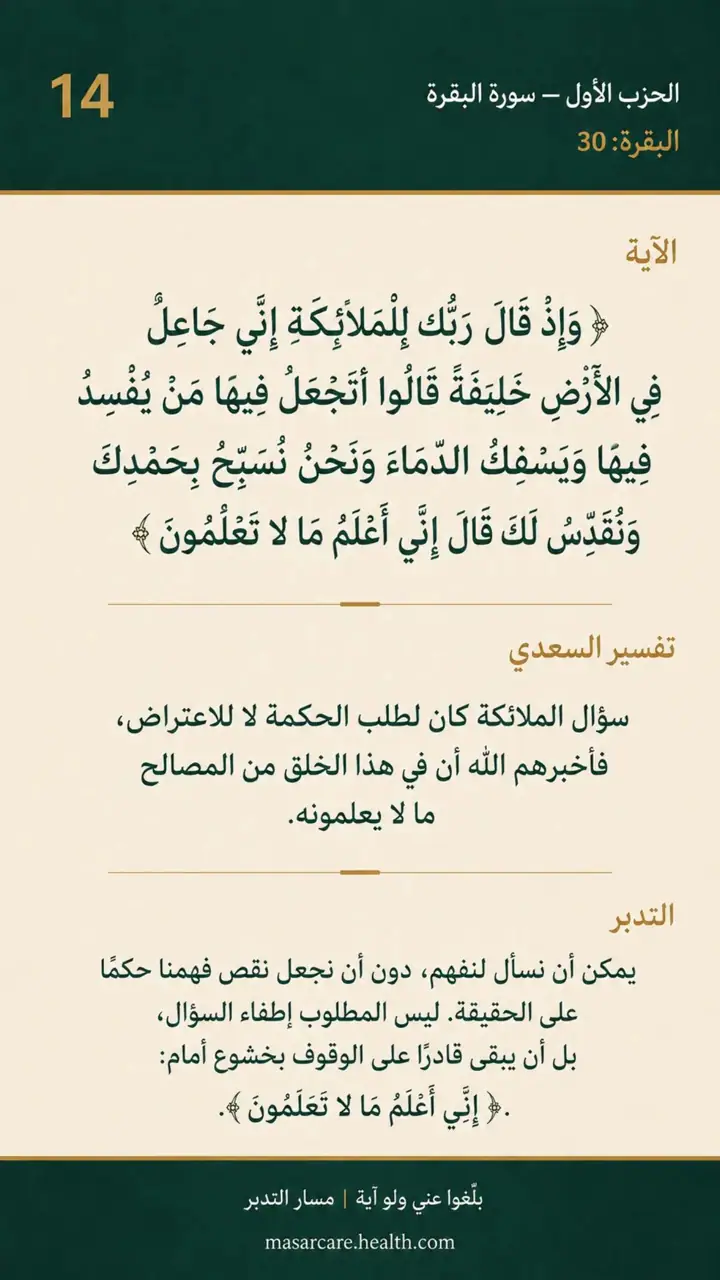 14
الحزب الأول – سورة البقرة
البقرة: 30
الآية
﴿ وَإِذْ قَالَ رَبُّك لِلْمَلاَئِكَةِ إِنَّي جَاعِلٌ
فِي الأَرْضِ خَلِيَفَةً قَالُوا أتَجْعَلُ فِيهَا مَنْ يُفْسِدُ
فِيهَا وَيَسْفِكُ الدّمَاءَ وَنَحْنُ نُسَبِّحُ بِحَمْدِكَ
وَنُقَدِّسُ لَكَ قَالَ إِنَّي أَعْلَمُ مَا لا تَعْلُمُونَ ﴾
تفسير السعدي
سؤال الملائكة كان لطلب الحكمة لا للاعتراض،
فأخبرهم الله أن في هذا الخلق من المصالح
ما لا يعلمونه.
التدبر
يمكن أن نسأل لنفهم، دون أن نجعل نقص فهمنا حكمًا
على الحقيقة. ليس المطلوب إطفاء السؤال،
بل أن يبقى قادرًا على الوقوف بخشوع أمام:
.﴿ إِنَّي أَعْلَمُ مَا لا تَعَلَمُونَ ﴾.
بلّغوا عني ولو آية | مسار التدبر
masarcare.health.com